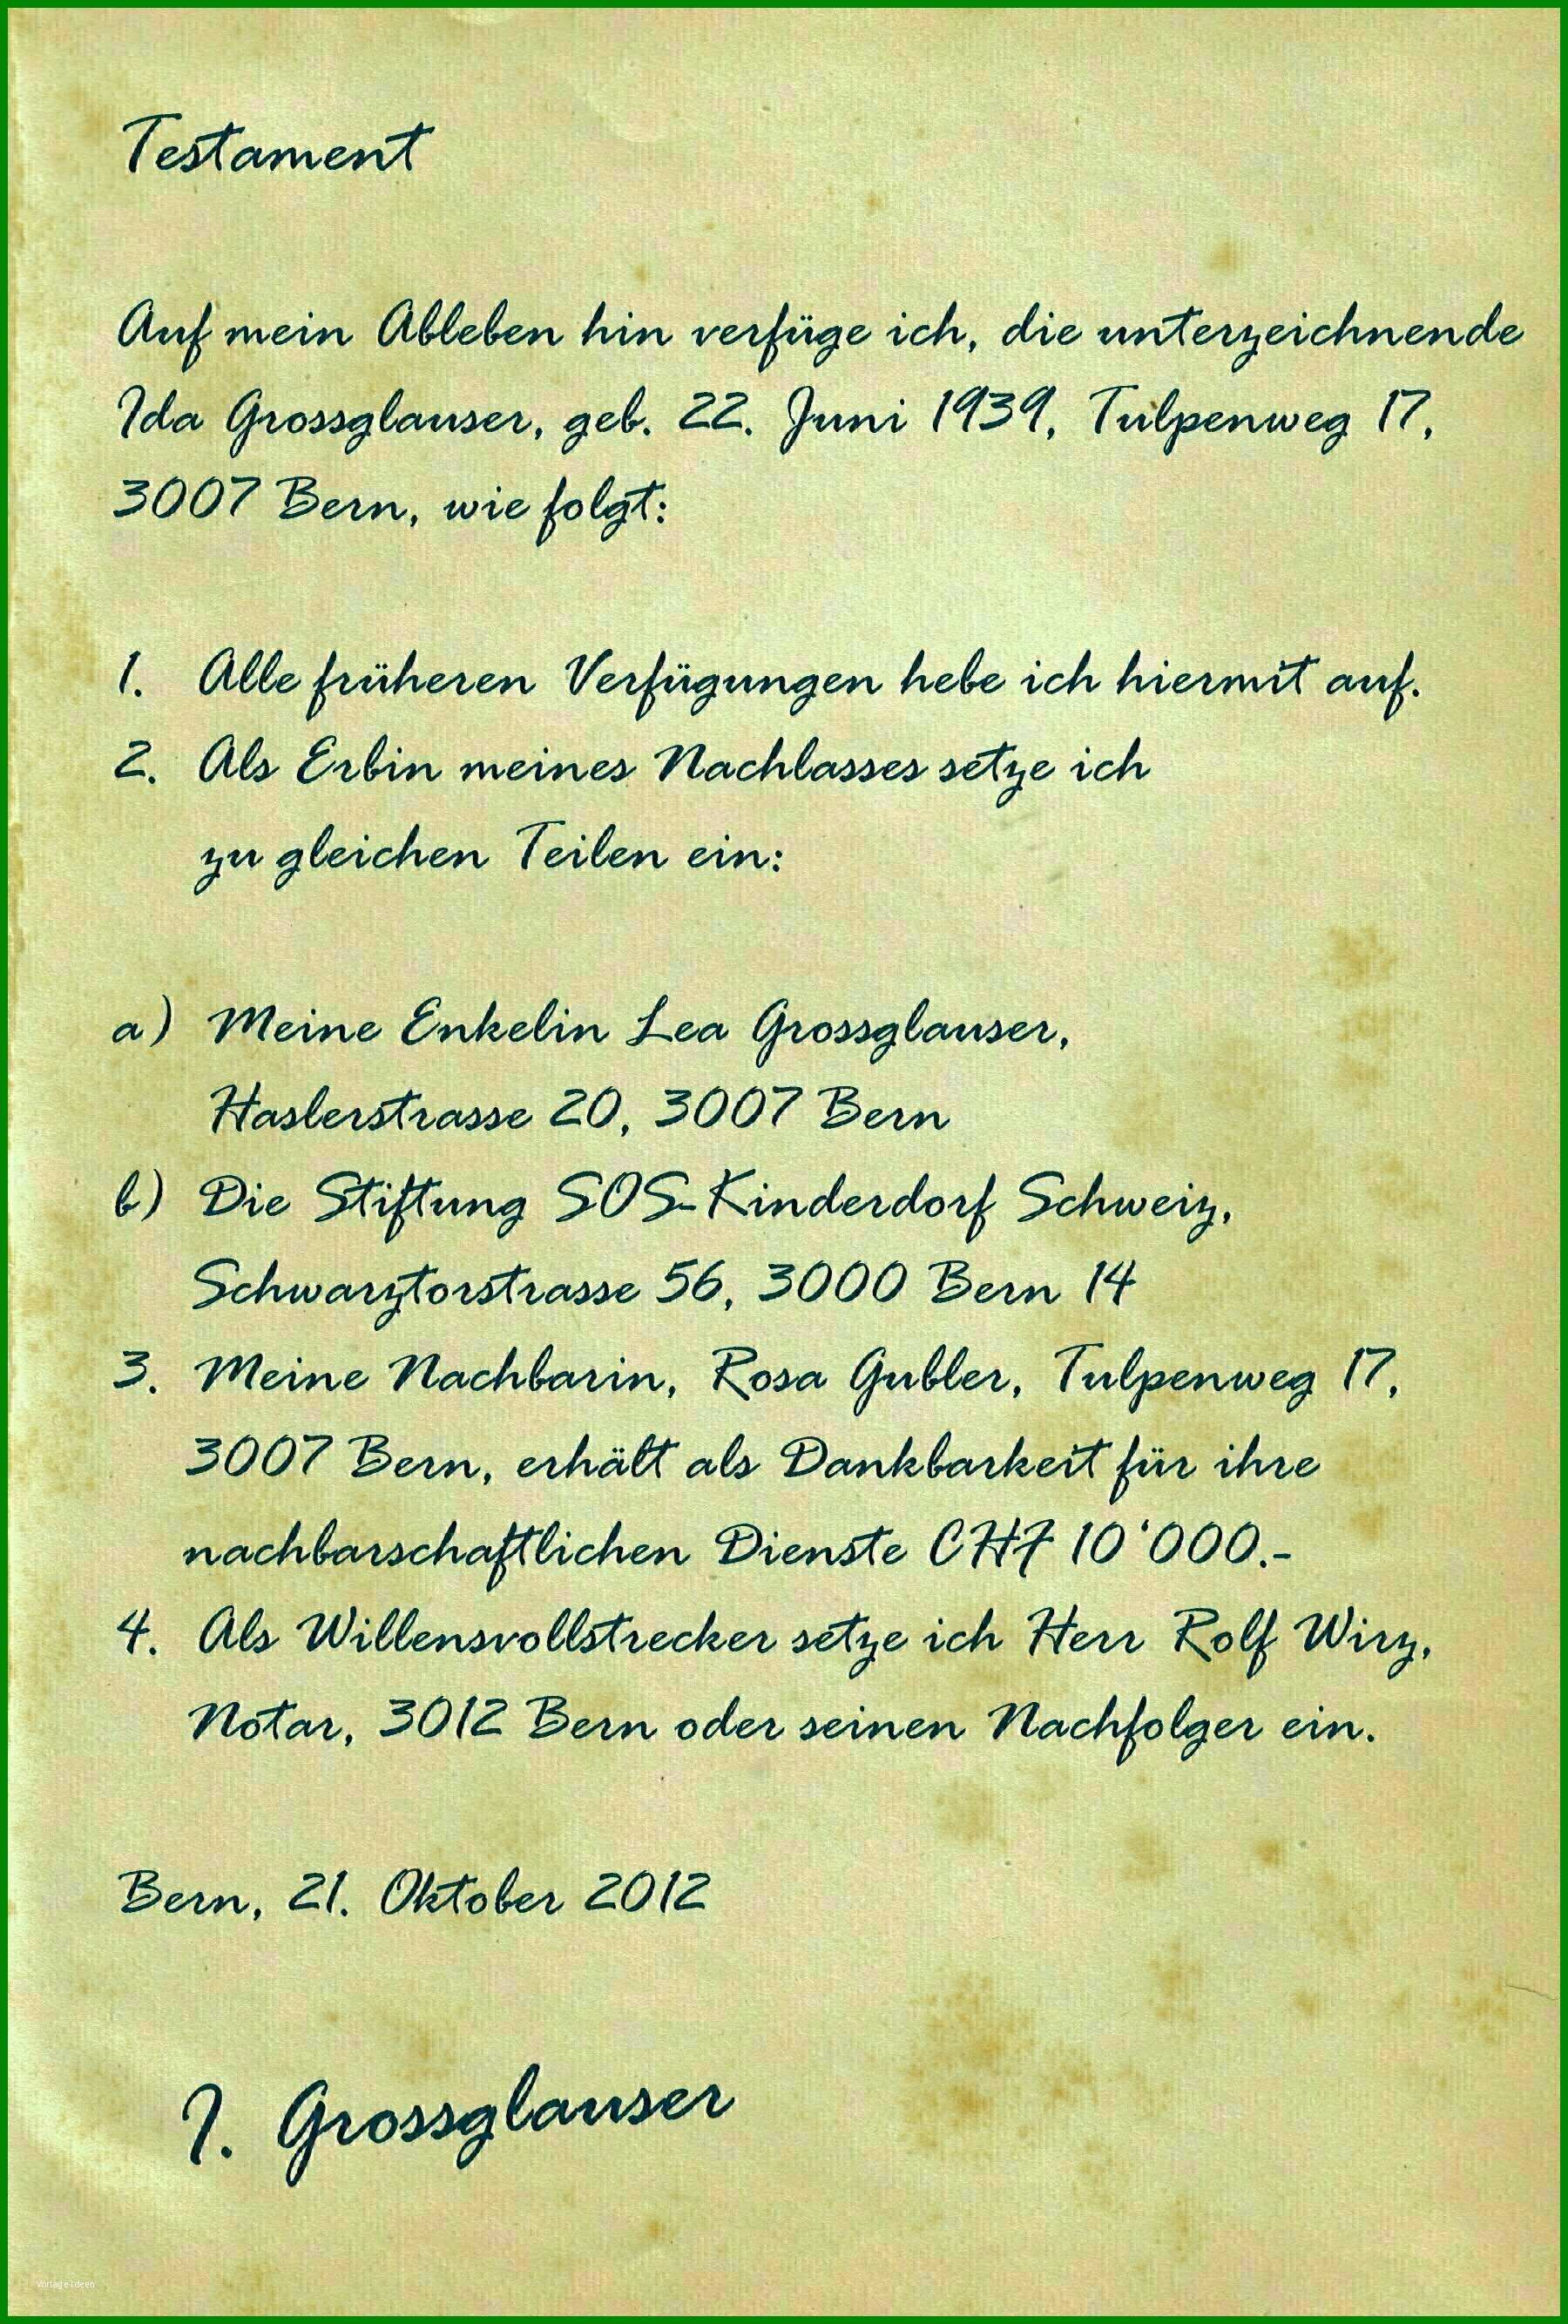 Testament
Auf mein Ableben hin verfüge ich, die unterzeichnende
Ida Grossglauser, geb. 22. Juni 1939, Tulpenweg 17,
3007 Bern, wie folgt:
1. Alle früheren Verfügungen hebe ich hiermit auf.
2. Als Erbin meines Nachlasses setze ich
zu gleichen Teilen ein:
a) Meine Enkelin Lea Grossglauser,
Haslerstrasse 20, 3007 Bern
b) Die Stiftung SOS-Kinderdorf Schweiz,
Schwarztorstrasse 56, 3000 Bern 14
3. Meine Nachbarin, Rosa Gubler, Tulpenweg 17,
3007 Bern, erhält als Dankbarkeit für ihre
nachbarschaftlichen Dienste CHF 10'000.-
4. Als Willensvollstrecker setze ich Herr Rolf Wirz,
Notar, 3012 Bern oder seinen Nachfolger ein.
Bern, 21. Oktober 2012
I. Grossglauser
Vorlage Ideen